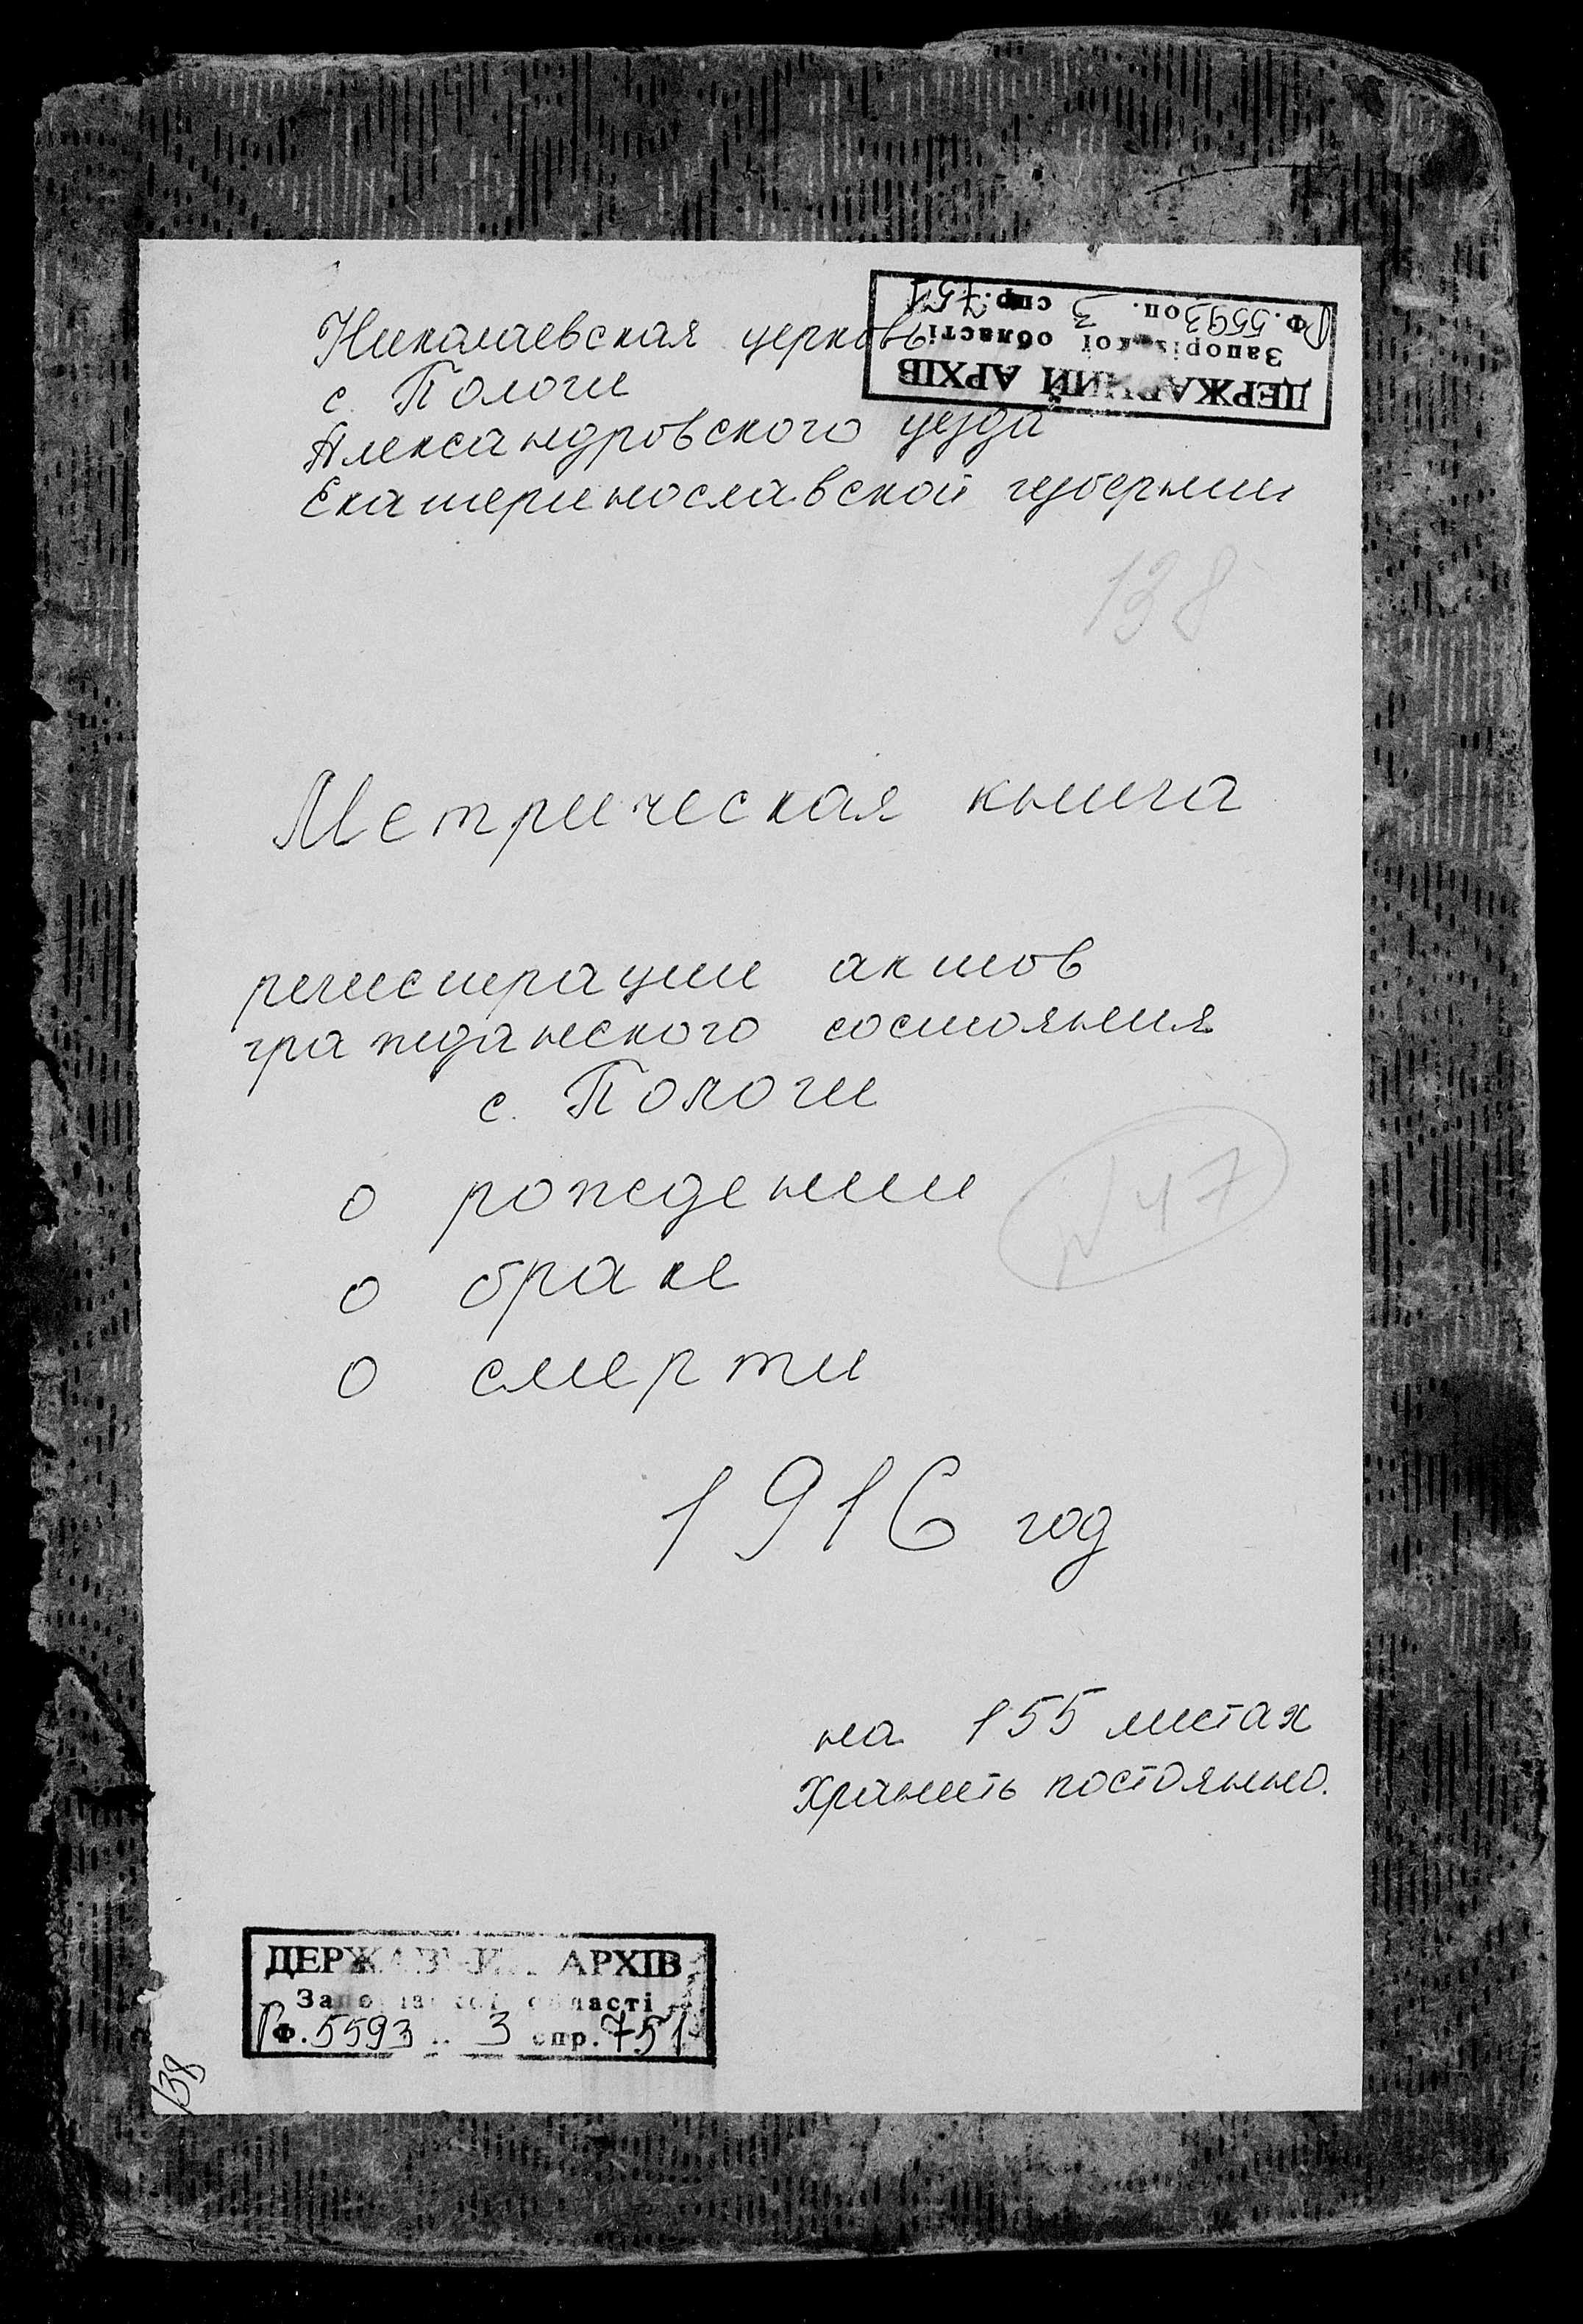 Николаевская церковь
с. Пологи
Александровского уезда
Екатеринославской губернии
ДЕРЖАВНИЙ АРХІВ
Запорізької області
Р Ф. 5593 оп. 3 спр. 751
138
Метрическая книга
регистрации актов
гражданского состояния
с. Пологи
о рождении
N 47
о браке
о смерти
1916 год
на 155 листах
Хранить постоянно.
ДЕРЖАВНИЙ АРХІВ
Запорізької області
Р Ф. 5593 3 спр. 751
138